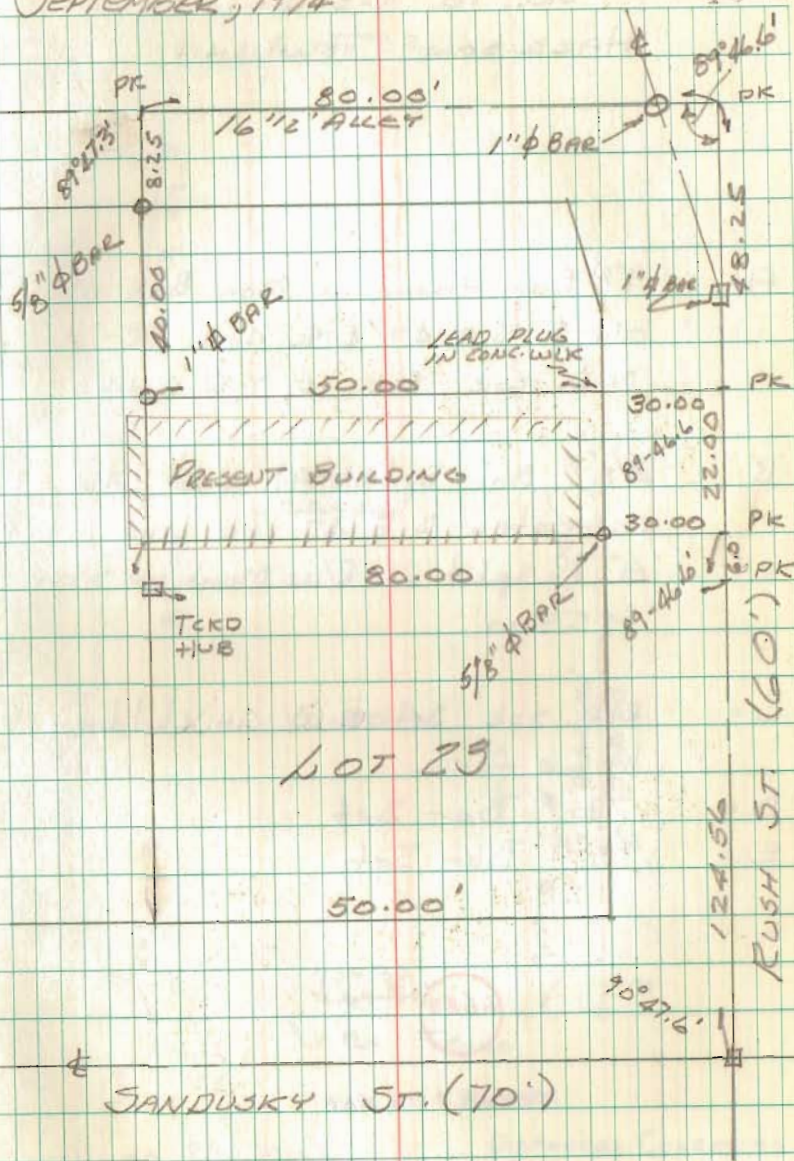 SEPTEMBER, 1974
PK
80.00'
16 1/2' ALLEY
℄
89°46.6'
PK
1"ϕ BAR
8.25
5/8"ϕ BAR
40.00
1"ϕ BAR
1"ϕ BAR
48.25
LEAD PLUG
IN CONC. WLK
50.00
30.00
PK
89-46.6
22.00
PRESENT BUILDING
30.00
PK
80.00
6.0
PK
89-46.6'
5/8"ϕ BAR
TCKD
HUB
LOT 23
124.56
RUSH ST. (60')
50.00'
90°47.6'
℄
SANDUSKY ST. (70')